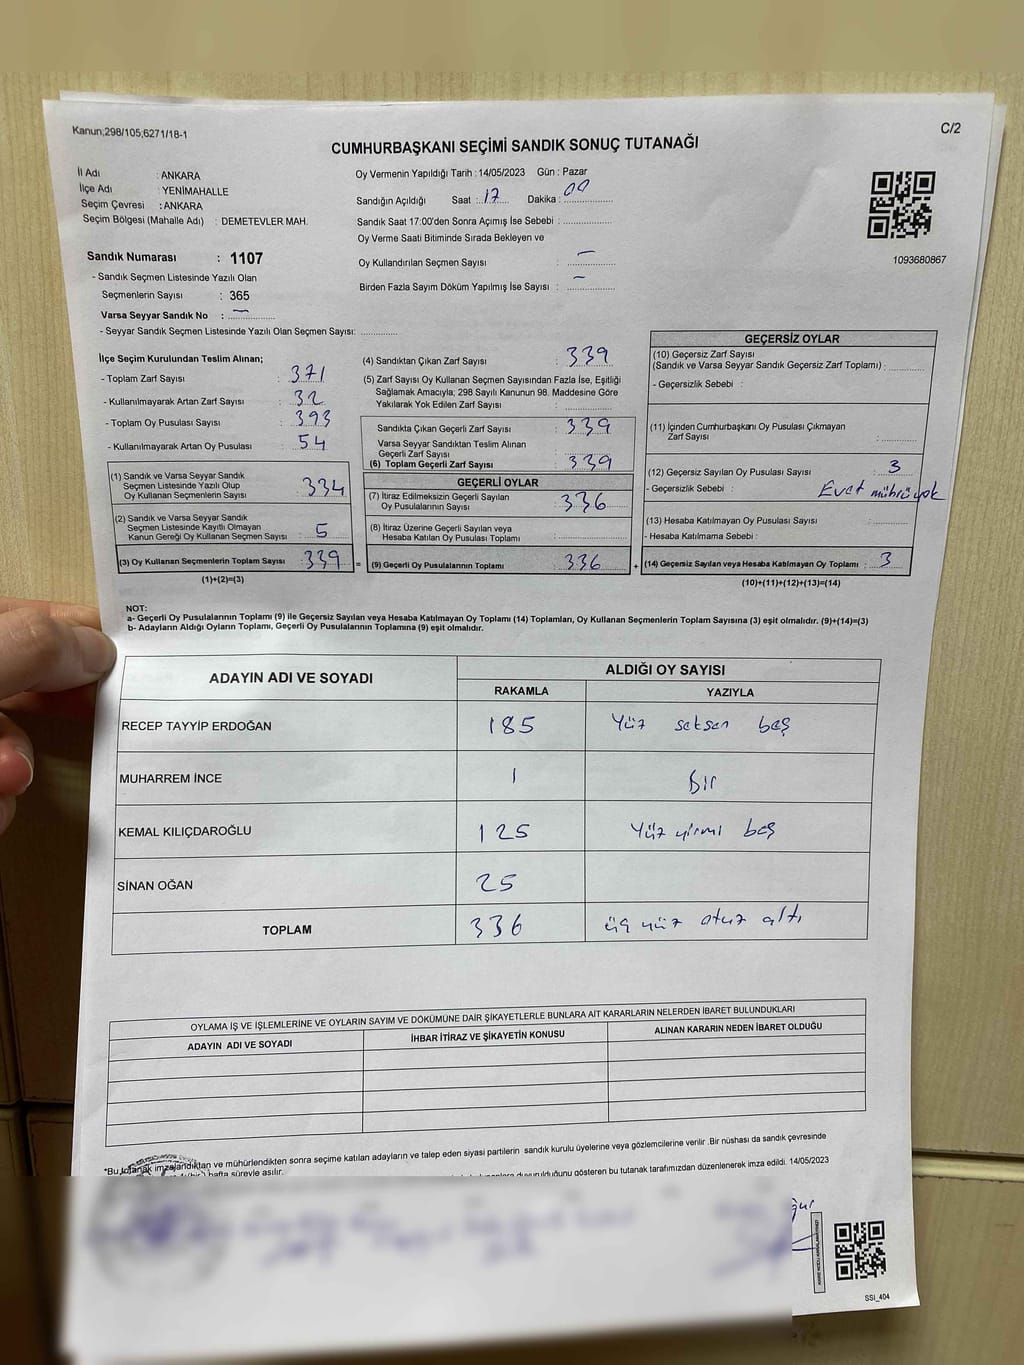 Kanun;298/105;6271/18-1
C/2
CUMHURBAŞKANI SEÇİMİ SANDIK SONUÇ TUTANAĞI
İl Adı : ANKARA
İlçe Adı : YENİMAHALLE
Seçim Çevresi : ANKARA
Seçim Bölgesi (Mahalle Adı) : DEMETEVLER MAH.
Oy Vermenin Yapıldığı Tarih : 14/05/2023 Gün : Pazar
Sandığın Açıldığı Saat : 17 Dakika : 00
Sandık Saat 17:00'den Sonra Açımış İse Sebebi :
Oy Verme Saati Bitiminde Sırada Bekleyen ve
Oy Kullandırılan Seçmen Sayısı : —
Birden Fazla Sayım Döküm Yapılmış İse Sayısı : —
1093680867
Sandık Numarası : 1107
- Sandık Seçmen Listesinde Yazılı Olan
Seçmenlerin Sayısı : 365
Varsa Seyyar Sandık No : —
- Seyyar Sandık Seçmen Listesinde Yazılı Olan Seçmen Sayısı:
İlçe Seçim Kurulundan Teslim Alınan;
- Toplam Zarf Sayısı : 371
- Kullanılmayarak Artan Zarf Sayısı : 32
- Toplam Oy Pusulası Sayısı : 393
- Kullanılmayarak Artan Oy Pusulası : 54
(1) Sandık ve Varsa Seyyar Sandık
Seçmen Listesinde Yazılı Olup
Oy Kullanan Seçmenlerin Sayısı : 334
(2) Sandık ve Varsa Seyyar Sandık
Seçmen Listesinde Kayıtlı Olmayan
Kanun Gereği Oy Kullanan Seçmen Sayısı : 5
(3) Oy Kullanan Seçmenlerin Toplam Sayısı : 339
(1)+(2)=(3)
(4) Sandıktan Çıkan Zarf Sayısı : 339
(5) Zarf Sayısı Oy Kullanan Seçmen Sayısından Fazla İse, Eşitliği
Sağlamak Amacıyla; 298 Sayılı Kanunun 98. Maddesine Göre
Yakılarak Yok Edilen Zarf Sayısı :
Sandıkta Çıkan Geçerli Zarf Sayısı : 339
Varsa Seyyar Sandıktan Teslim Alınan
Geçerli Zarf Sayısı :
(6) Toplam Geçerli Zarf Sayısı : 339
GEÇERLİ OYLAR
(7) İtiraz Edilmeksizin Geçerli Sayılan
Oy Pusulalarının Sayısı : 336
(8) İtiraz Üzerine Geçerli Sayılan veya
Hesaba Katılan Oy Pusulası Toplamı :
= (9) Geçerli Oy Pusulalarının Toplamı : 336
GEÇERSİZ OYLAR
(10) Geçersiz Zarf Sayısı
(Sandık ve Varsa Seyyar Sandık Geçersiz Zarf Toplamı) :
- Geçersizlik Sebebi :
(11) İçinden Cumhurbaşkanı Oy Pusulası Çıkmayan
Zarf Sayısı :
(12) Geçersiz Sayılan Oy Pusulası Sayısı : 3
- Geçersizlik Sebebi : Evet mührü yok
(13) Hesaba Katılmayan Oy Pusulası Sayısı :
- Hesaba Katılmama Sebebi :
+ (14) Geçersiz Sayılan veya Hesaba Katılmayan Oy Toplamı : 3
(10)+(11)+(12)+(13)=(14)
NOT:
a- Geçerli Oy Pusulalarının Toplamı (9) ile Geçersiz Sayılan veya Hesaba Katılmayan Oy Toplamı (14) Toplamları, Oy Kullanan Seçmenlerin Toplam Sayısına (3) eşit olmalıdır. (9)+(14)=(3)
b- Adayların Aldığı Oyların Toplamı, Geçerli Oy Pusulalarının Toplamına (9) eşit olmalıdır.
ADAYIN ADI VE SOYADI
ALDIĞI OY SAYISI
RAKAMLA YAZIYLA
RECEP TAYYİP ERDOĞAN 185 Yüz seksen beş
MUHARREM İNCE 1 Bir
KEMAL KILIÇDAROĞLU 125 Yüz yirmi beş
SİNAN OĞAN 25
TOPLAM 336 üç yüz otuz altı
OYLAMA İŞ VE İŞLEMLERİNE VE OYLARIN SAYIM VE DÖKÜMÜNE DAİR ŞİKAYETLERLE BUNLARA AİT KARARLARIN NELERDEN İBARET BULUNDUKLARI
ADAYIN ADI VE SOYADI İHBAR İTİRAZ VE ŞİKAYETİN KONUSU ALINAN KARARIN NEDEN İBARET OLDUĞU
*Bu tutanak imzalandıktan ve mühürlendikten sonra seçime katılan adayların ve talep eden siyasi partilerin sandık kurulu üyelerine veya gözlemcilerine verilir .Bir nüshası da sandık çevresinde
hafta süreyle asılır.
duyurulduğunu gösteren bu tutanak tarafımızdan düzenlenerek imza edildi. 14/05/2023
SSI_404